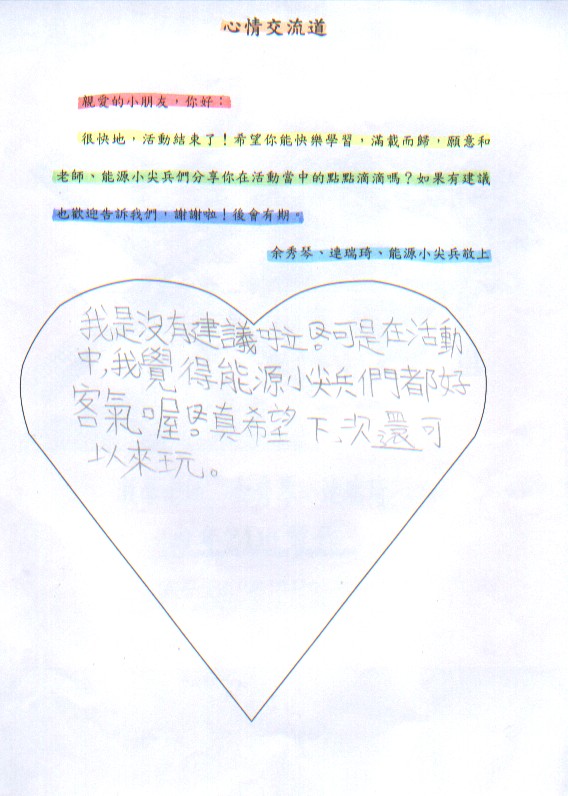 心情交流道
親愛的小朋友，你好：
很快地，活動結束了！希望你能快樂學習，滿載而歸，願意和
老師、能源小尖兵們分享你在活動當中的點點滴滴嗎？如果有建議
也歡迎告訴我們，謝謝啦！後會有期。
余秀琴、連瑞琦、能源小尖兵敬上
我是沒有建議啦!可是在活動
中,我覺得能源小尖兵們都好
客氣喔!真希望下次還可
以來玩。